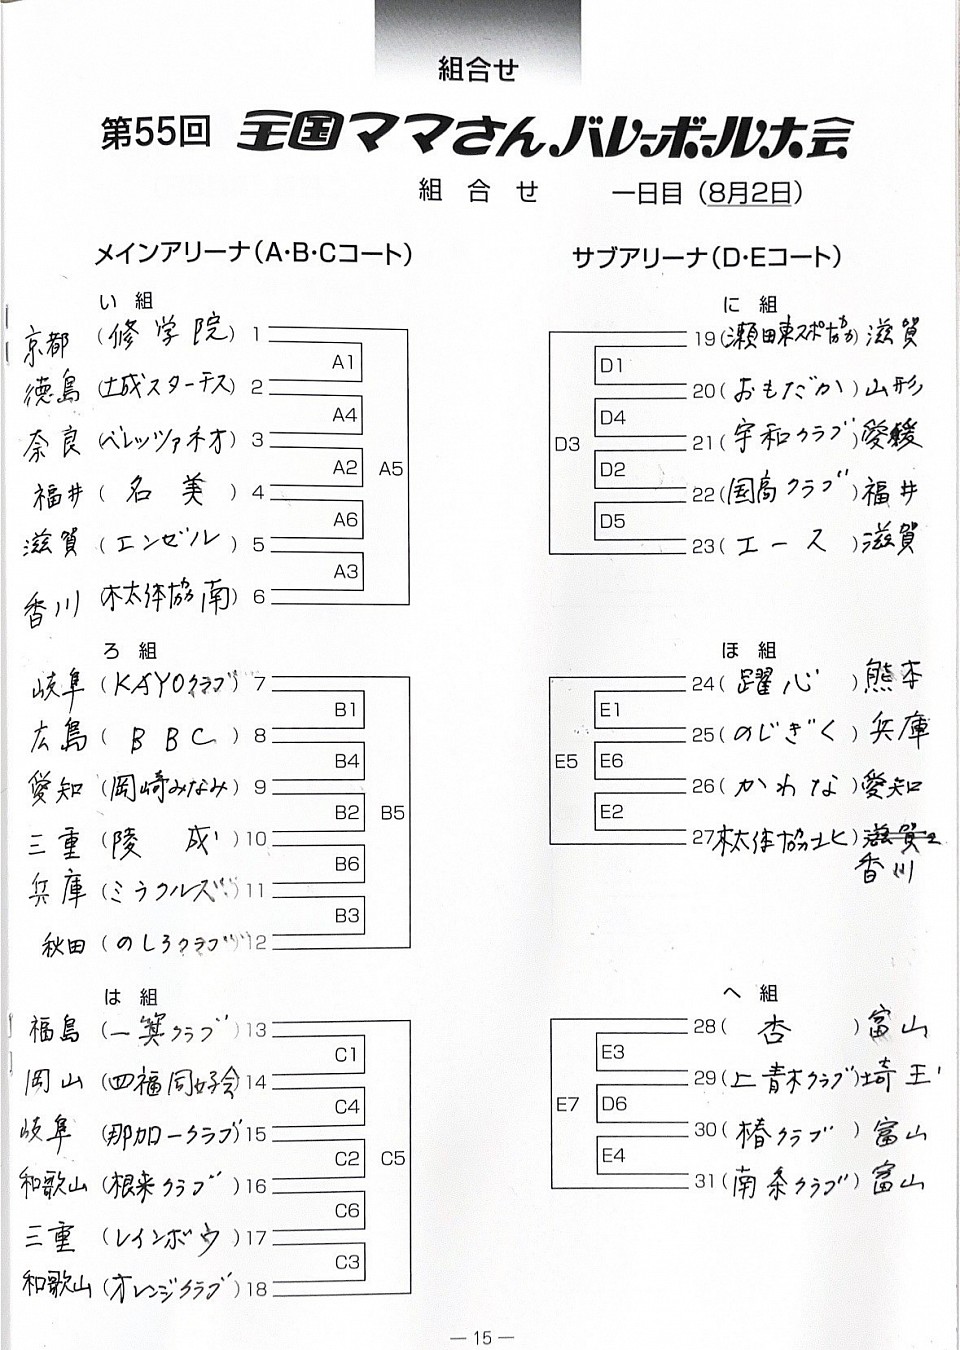 組合せ
第55回 全国ママさんバレーボール大会
組合せ 一日目（8月2日）
メインアリーナ（A・B・Cコート）
い組
京都（修学院）1
徳島（土成スターチス）2
奈良（ベレッツァネオ）3
福井（名美）4
滋賀（エンゼル）5
香川（木太体協南）6
A1
A4
A2
A5
A6
A3
ろ組
岐阜（KAYOクラブ）7
広島（BBC）8
愛知（岡崎みなみ）9
三重（陵成）10
兵庫（ミラクルズ）11
秋田（のしろクラブ）12
B1
B4
B2
B5
B6
B3
は組
福島（一箕クラブ）13
岡山（四福同好会）14
岐阜（那加一クラブ）15
和歌山（根来クラブ）16
三重（レインボウ）17
和歌山（オレンジクラブ）18
C1
C4
C2
C5
C6
C3
サブアリーナ（D・Eコート）
に組
19（瀬田東スポ協）滋賀
20（おもだか）山形
21（宇和クラブ）愛媛
22（国高クラブ）福井
23（エース）滋賀
D1
D4
D3
D2
D5
ほ組
24（躍心）熊本
25（のじぎく）兵庫
26（かわな）愛知
27 木太体協北）滋賀
香川
E1
E5
E6
E2
へ組
28（杏）富山
29（上青木クラブ）埼玉
30（椿クラブ）富山
31（南条クラブ）富山
E3
E7
D6
E4
— 15 —